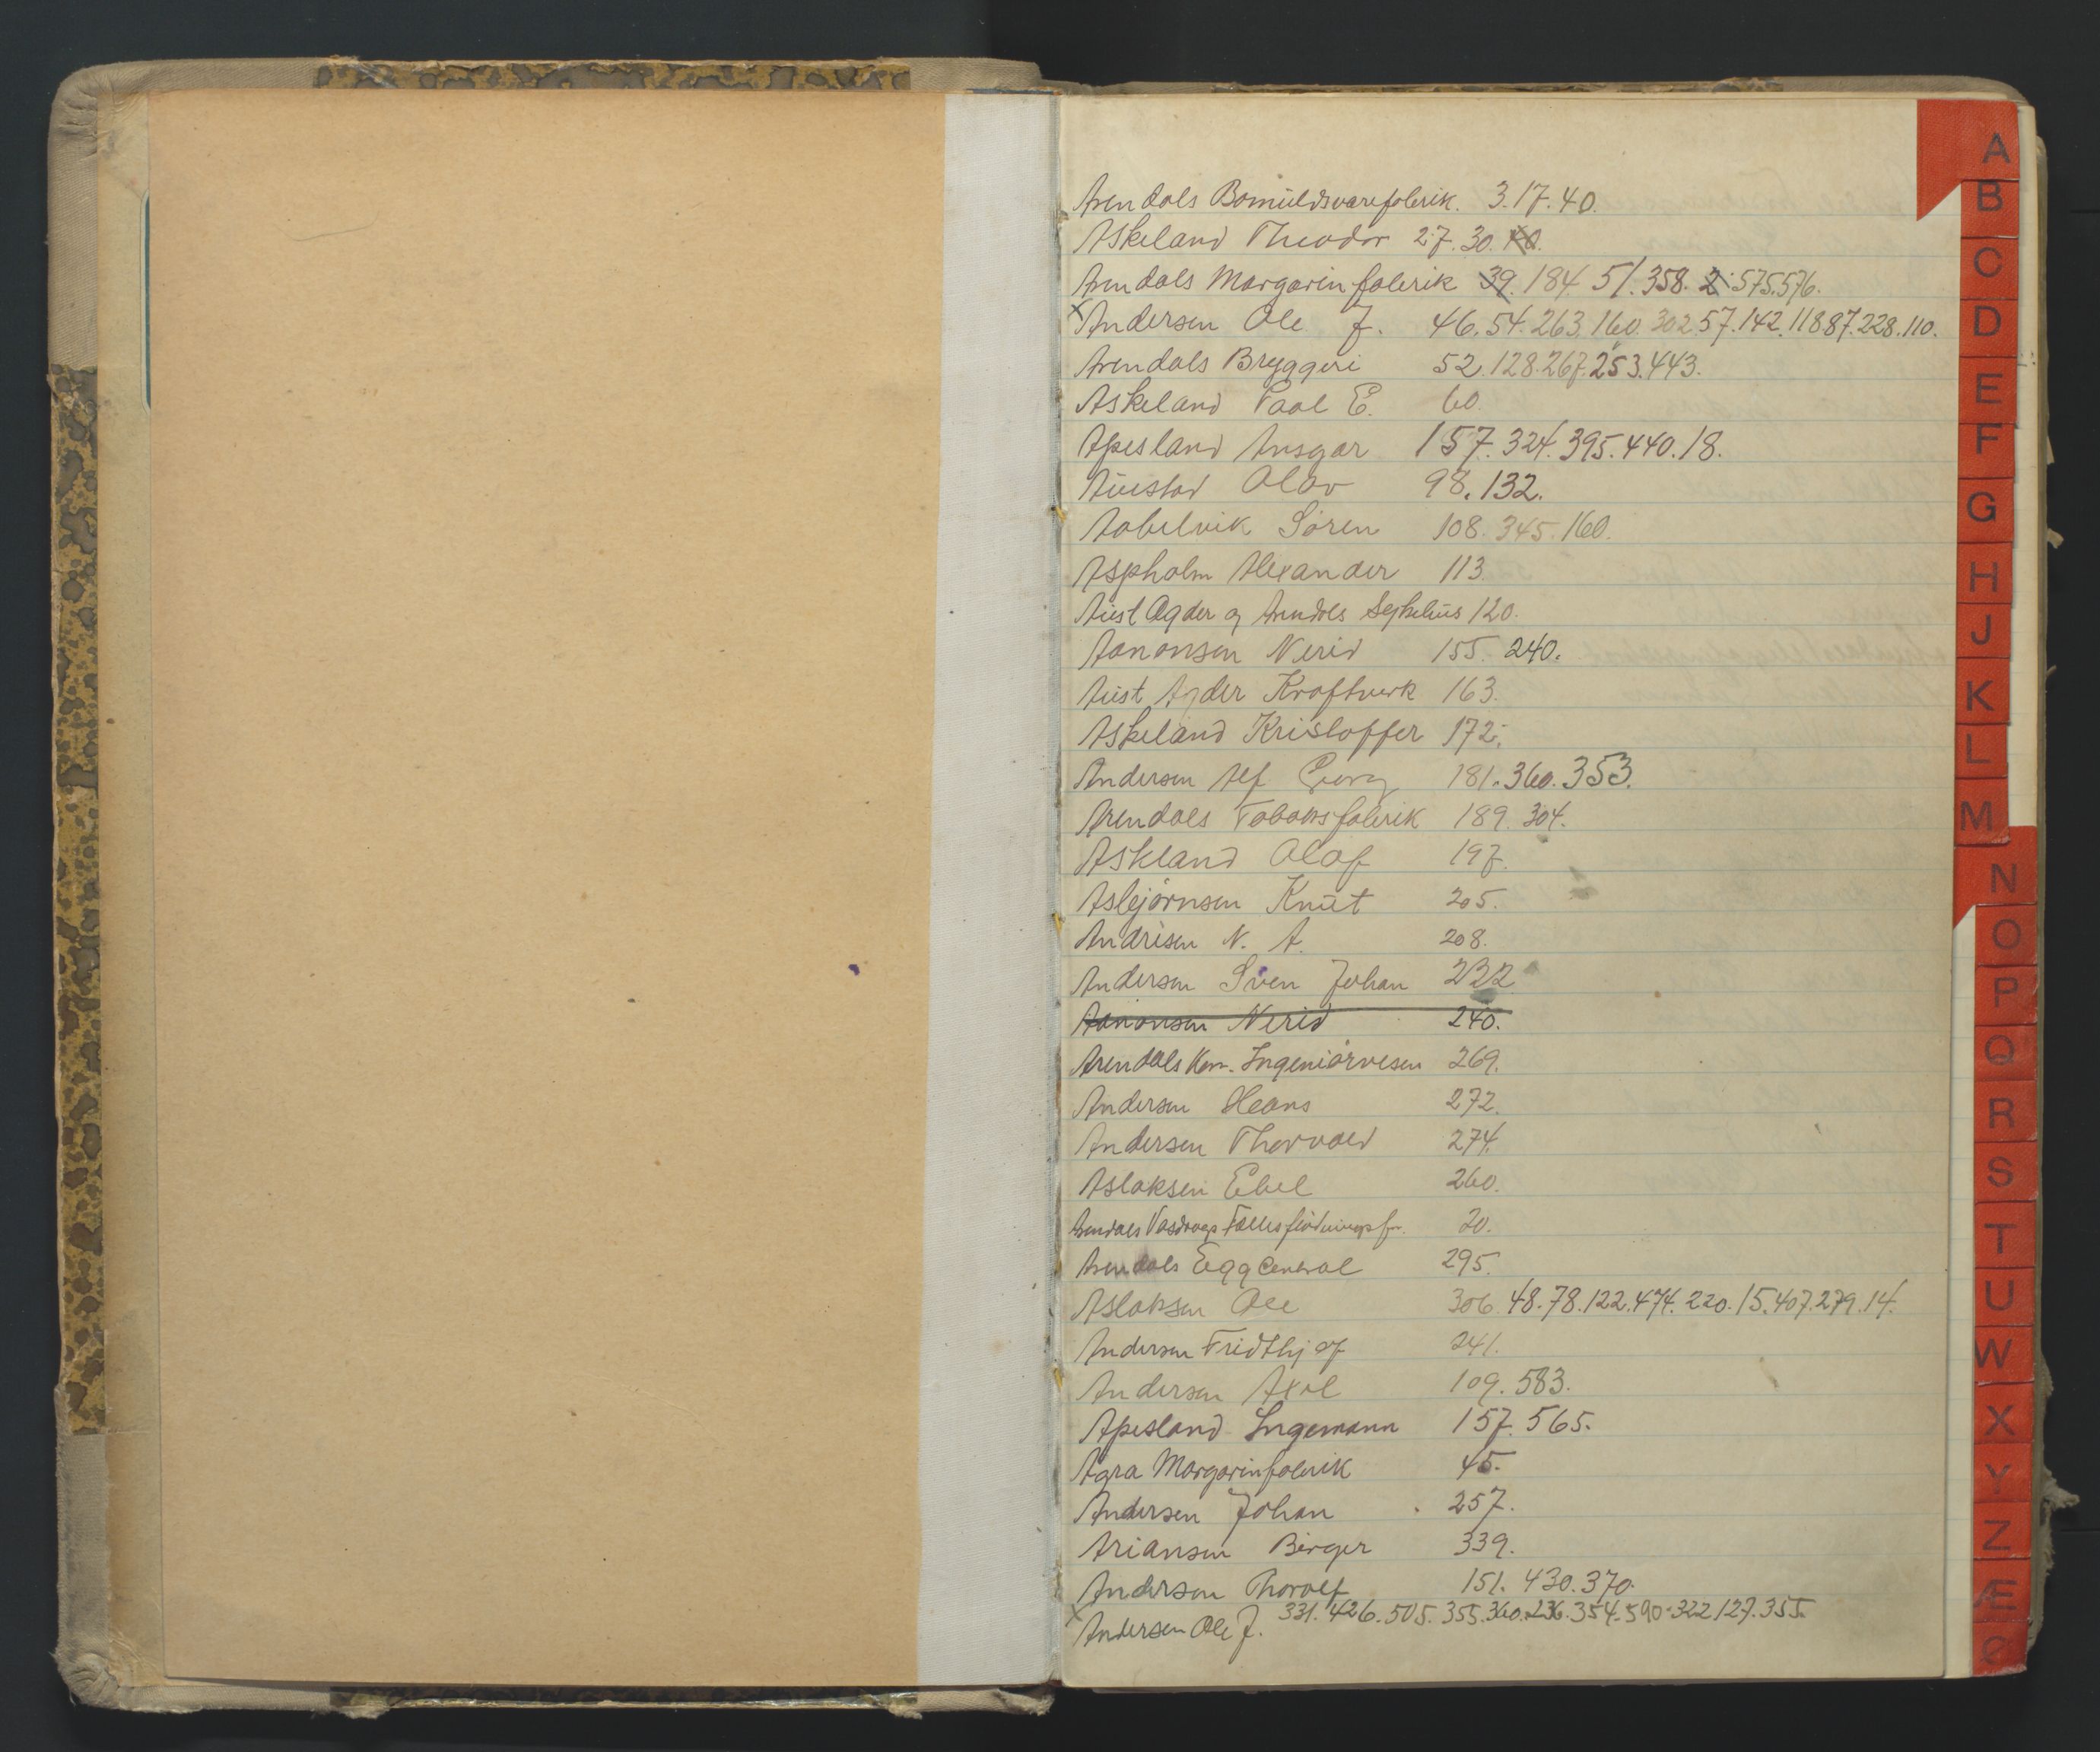 Arendals Bomüldsvarefabrik. 3.17.40.
Askeland Theodor 27.30.40.
Arendals Margarinfabrik 39.184.51.358.2.575.576.
x Andersen Ole J. 46.54.263.160.302.57.142.118.87.228.110.
Arendals Bryggeri 52.128.267.253.443.
Askeland Paal E. 60
Apesland Ansgar 157.324.395.440.18.
Aüestad Olav 98.132.
Aabelvik Sören 108.345.160.
Aspholm Alexander 113
Aüst Agder og Arendals Sykehüs 120.
Aanonsen Nerid 155. 240.
Aüst Agder Kraftverk 163.
Askeland Kristoffer 172.
Andersen Alf Georg 181.360.353.
Arendals Tobaksfabrik 189.304.
Askland Olaf 197.
Asbjörnsen Knüt 205.
Andrisen N. A. 208.
Andersen Sven Johan 232
Aanonsen Nerid 240.
Arendals Kom. Ingeniörvesen 269.
Andersen Hans 272.
Andersen Thorvald 274.
Aslaksen Ebel 260.
Arendals Vasdrags Fællesflödnings 20.
Arendals Egg Central 295.
Aslaksen Ole 306.48.78.122.474.220.15.407.279.14.
Andersen Fridthjof 241.
Andersen Axel 109.583.
Apesland Ingemann 157.565.
Agra Margarinfabrik 45.
Andersen Johan 257.
Ariansen Birger 339.
Andersen Thoralf 151.430.370.
x Andersen Ole J. 331.426.505.355.360.236.354.590.322.127.355.
A
B
C
D
E
F
G
H
J
K
L
M
N
O
P
Q
R
S
T
U
W
X
Y
Z
Æ
Ø